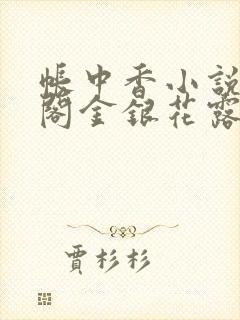 帳中香小說
閣金銀花露
賈杉杉